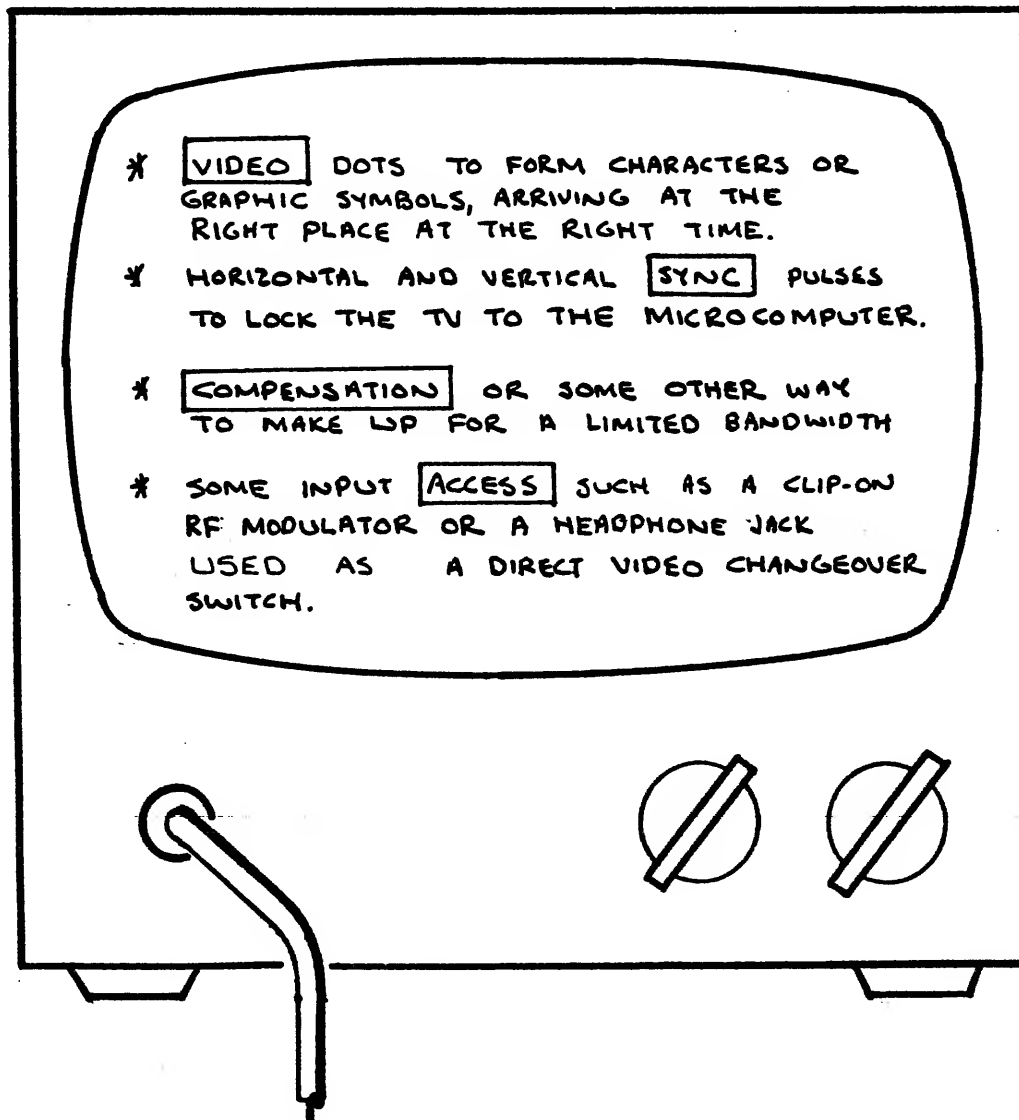 * VIDEO DOTS TO FORM CHARACTERS OR
GRAPHIC SYMBOLS, ARRIVING AT THE
RIGHT PLACE AT THE RIGHT TIME.
* HORIZONTAL AND VERTICAL SYNC PULSES
TO LOCK THE TV TO THE MICROCOMPUTER.
* COMPENSATION OR SOME OTHER WAY
TO MAKE UP FOR A LIMITED BANDWIDTH
* SOME INPUT ACCESS SUCH AS A CLIP-ON
RF MODULATOR OR A HEADPHONE JACK
USED AS A DIRECT VIDEO CHANGEOVER
SWITCH.